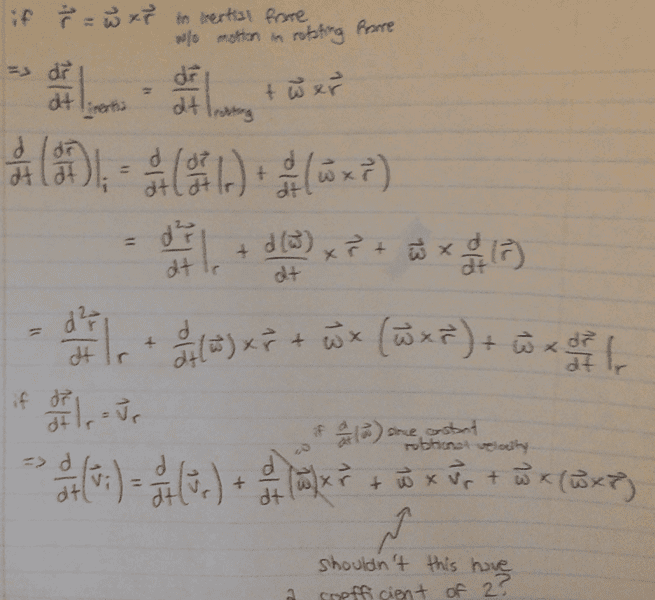 if r⃗̇ = ω⃗ × r⃗ in inertial frame
w/o motion in rotating frame
=> dr⃗/dt|inertial = dr⃗/dt|rotating + ω⃗ × r⃗
d/dt(dr⃗/dt)|i = d/dt(dr⃗/dt|r) + d/dt(ω⃗ × r⃗)
= d²r⃗/dt|r + d(ω⃗)/dt × r⃗ + ω⃗ × d/dt(r⃗)
= d²r⃗/dt|r + d/dt(ω⃗) × r⃗ + ω⃗ × (ω⃗ × r⃗) + ω⃗ × dr⃗/dt|r
if dr⃗/dt|r = v⃗r
=0 if d/dt(ω⃗) since constant
rotational velocity
=> d/dt(v⃗i) = d/dt(v⃗r) + d/dt(ω⃗) × r⃗ + ω⃗ × v⃗r + ω⃗ × (ω⃗ × r⃗)
shouldn't this have
a coefficient of 2?